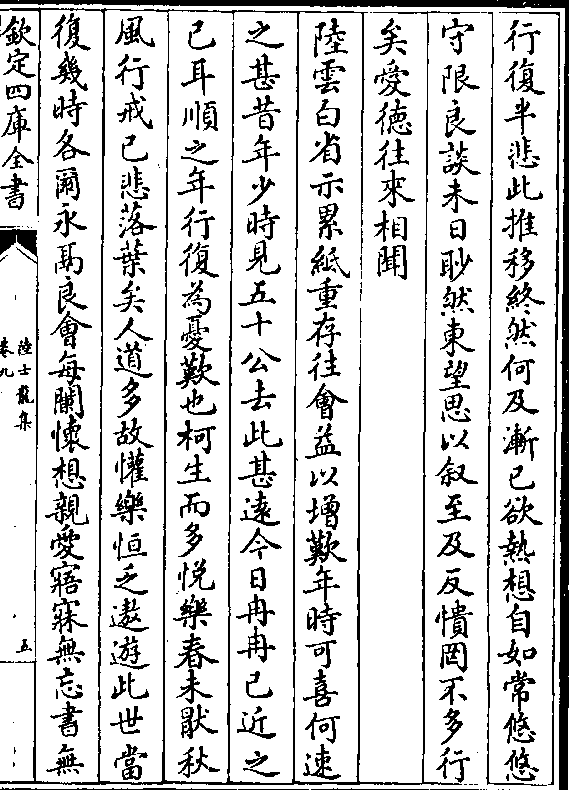 行復半悲此推移終然何及漸已欲熱想自如常悠悠
守限良談未日眇然東望思以叙至及反憒罔不多行
矣愛徳往來相聞
陸雲白省示累紙重存往會益以增歎年時可喜何速
之甚昔年少時見五十公去此甚逺今日冉冉已近之
已耳順之年行復為憂歎也柯生而多悦樂春未厭秋
風行戒已悲落葉矣人道多故懽樂恒乏遨遊此世當
復幾時各爾永隔良會每闌懐想親愛寤寐無忘書無
欽定四庫全書
陸士龍集
卷九
五